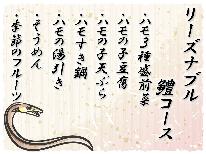 リーズナブル
鱧コース
・ハモ3種盛前菜
・ハモの子豆腐
・ハモの子天ぷら
・ハモすき鍋
・ハモの湯引き
・そうめん
・季節のフルーツ